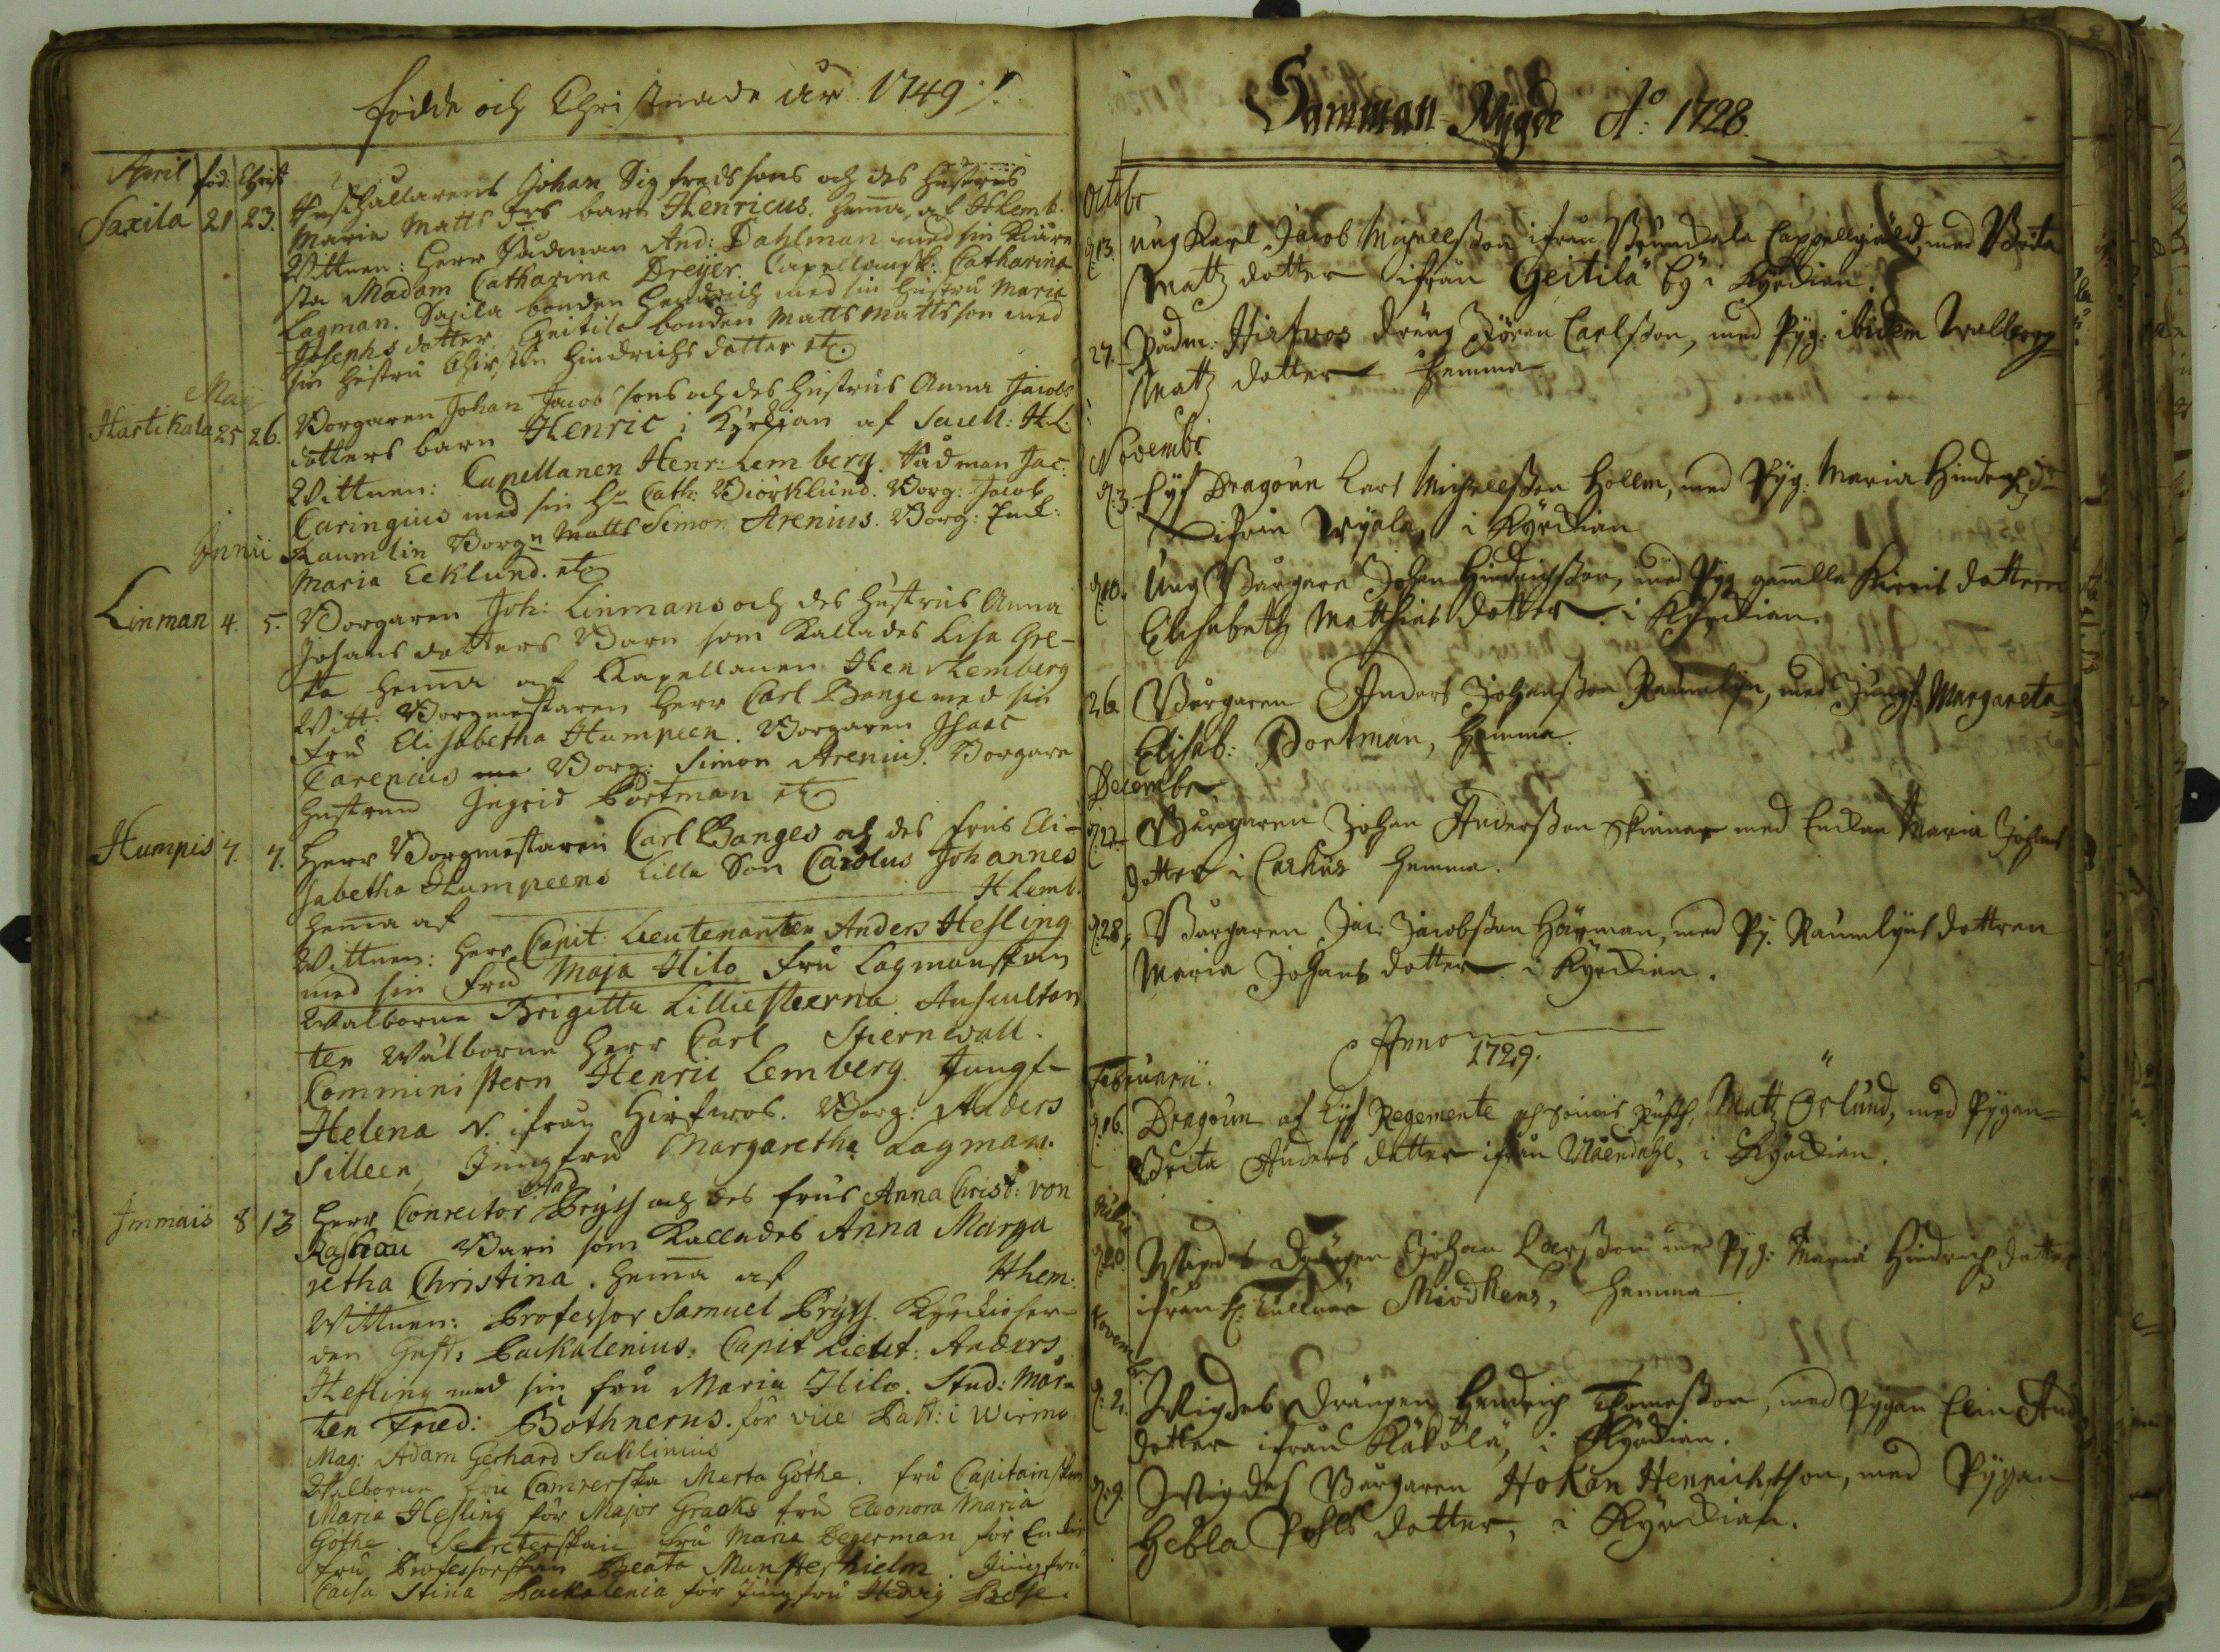 födde och Christnade åhr 1749 ./.
April föd: Christ
Saxila 21 23. Johan Sigfredssons och des hustrus
Maria Matts drs barn Henricus. hema, af H Lemb.
Wittnen: Herr Rådman And: Dahlman med sin kiära
sta Madam Catharina Dreijer. Capellansk: Catharina
Lagman. Saxila bonden Hendrich med sin hustru Maria
Josephs dotter. Geitila bonden Matts Mattsson med
sin hustru Christin Hindrichs dotter etc.
May
Hartikala 25 26. Borgaren Johan Jacobsons och des hustrus Anna Jacobs
dotters barn Henric i Kyrkian af Sacell: H.L.
Wittnen: Capellanen Henr: Lemberg. Rådman Jac:
Caringius med sin hu Cath: Biörklund. Borg: Jacob
Junii Raumlin Borgn Matts Simon Arenius. Borg:
Maria Ecklund. etc
Linman 4. 5. Borgaren Joh: Linmans och des hustrus Anna
Johans dotters Barn som kallades Lisa Gre-
ta hema af Kapellanen Hen Lemberg
Witt: Borgmestaren Herr Carl Bange med sin
fru Elisabetha Humpeen. Borgaren Isaac
Carenius Borg: Simon Arenius. Borgare
hustrun Ingrid Portman etc
Humpis 7. 7. Herr Borgmestaren Carl Banges och des frus Eli-
sabetha Humpeens lilla Son Carolus Johannes
hema af H Lemb.
Wittnen: Herr Capit: Lieutenanten Anders Hesling
med sin fru Maja Hilo fru Lagmanskan
Walborne Brigitta Lilliestierna. Auscultan
ten Wälborne Herr Carl Stiernwall.
Comministern Henric Lemberg. Jungf-
Helena N. ifrån Hirfwos. Borg: Anders
Silleen, Jungfru Margaretha Lagman.
Immais 8 13 Herr Conrector And Pryss och des frus Anna Christ: von
Raschau Barn som kallades Anna Marga
retha Christina. hema af H Lem:
Wittnen: Professor Samuel Pryss. Kyrkioher-
den Gust: Packalenius. Capit Lieut: Anders
Hesling med sin fru Maria Hilo. Stud: Mår-
ten Fried: Bothnerus. för vice Past: i Wirmo
Mag: Adam Gerhard Sahlinius
Wälborne fru Camrerska Merta Göthe. fru Capitainskan
Maria Hesling för Major Graaks fru Eleonora Maria
Göthe. Secreterskan fru Maria Degerman för Enke
fru Professorskan Beata Munsterhielm. Jungfru
Caisa Stina Packalenia för Jungfru Hedvig Bose.
Samman-Wygde Ao: 1728.
Octobr
d. 13. ung Karl Jacob Michelsson ifrån Brunkala Cappellgiäld, med Brita
Matz dotter ifrån Geitilä by i Kyrckian.
27. Rådm: Hirfwos dräng Jören Carlsson, med Pyg: ibidem Walborg
Matz dotter hemma
Novembr
d. 3. Lijf Dragoun Lars Michelsson Hollm, med Pyg: Maria Hindrichs dr
ifrån i Kyrckian
d. 10. Ung Burgare Johan Hindrichsson, med Pyg gamlla dottern
Elisabeth Matthias dotter i Kyrckian.
26. Burgaren Anders Johansson Raumlyn, med Jungf: Margareta
Elisab: Portman, hemma.
Decembr
d. 27. Burgaren Johan Andersson Skinnar med Enckan Maria Johans
dotter i hemma.
d. 28. Burgaren Jac: Jacobsson Hörman, med Py. Raumlyns dottren
Maria Johans dotter i Kyrckian.
Anno
1729.
Februarii.
d. 16. Dragoun af Lijf Regemente Matz Orlund, med Pygan
Brita Anders dotter ifrån i Kyrckian.
Julii
d. 20. Wigdes Drängen Johan Larsson med Pyg: Maria Hindrichs dotter
ifrån Miödkens, hemma.
Novembr.
d. 2. Wigdes Drängen Hendrich Thomasson, med Pygan Elin And
dotter ifrån Käkölä, i Kyrckian.
d. 9. Wigdes Burgaren Hokan Henrichsson, med Pygan
Hebla Pohls dotter, i Kyrckian.